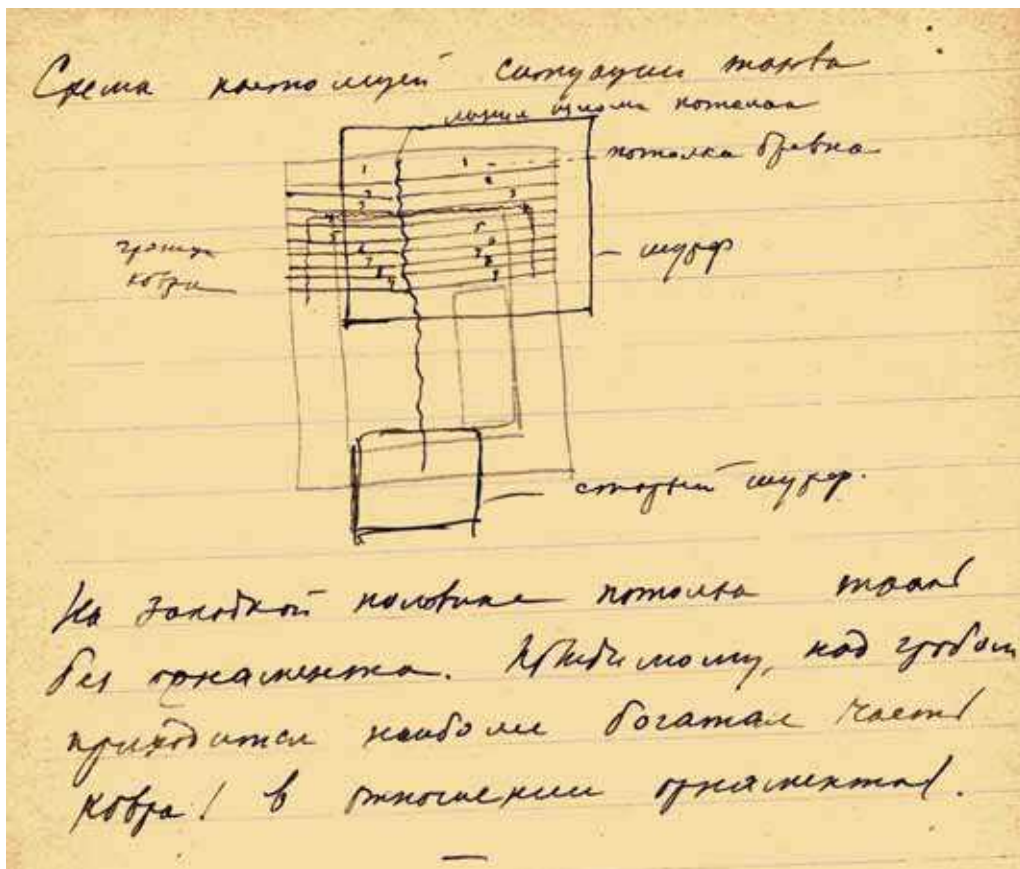 Схема настоящей ситуации такова
линия излома потолка
потолка бревна
1 1
2 2
3 3
4 4
5 5
6 6
7 7
8 8
9 9
граница
ковра
шурф
старый шурф.
На западной половине потолка ткань
без орнамента. Повидимому, над гробом
приходится наиболее богатая часть
ковра / в отношении орнамента /.